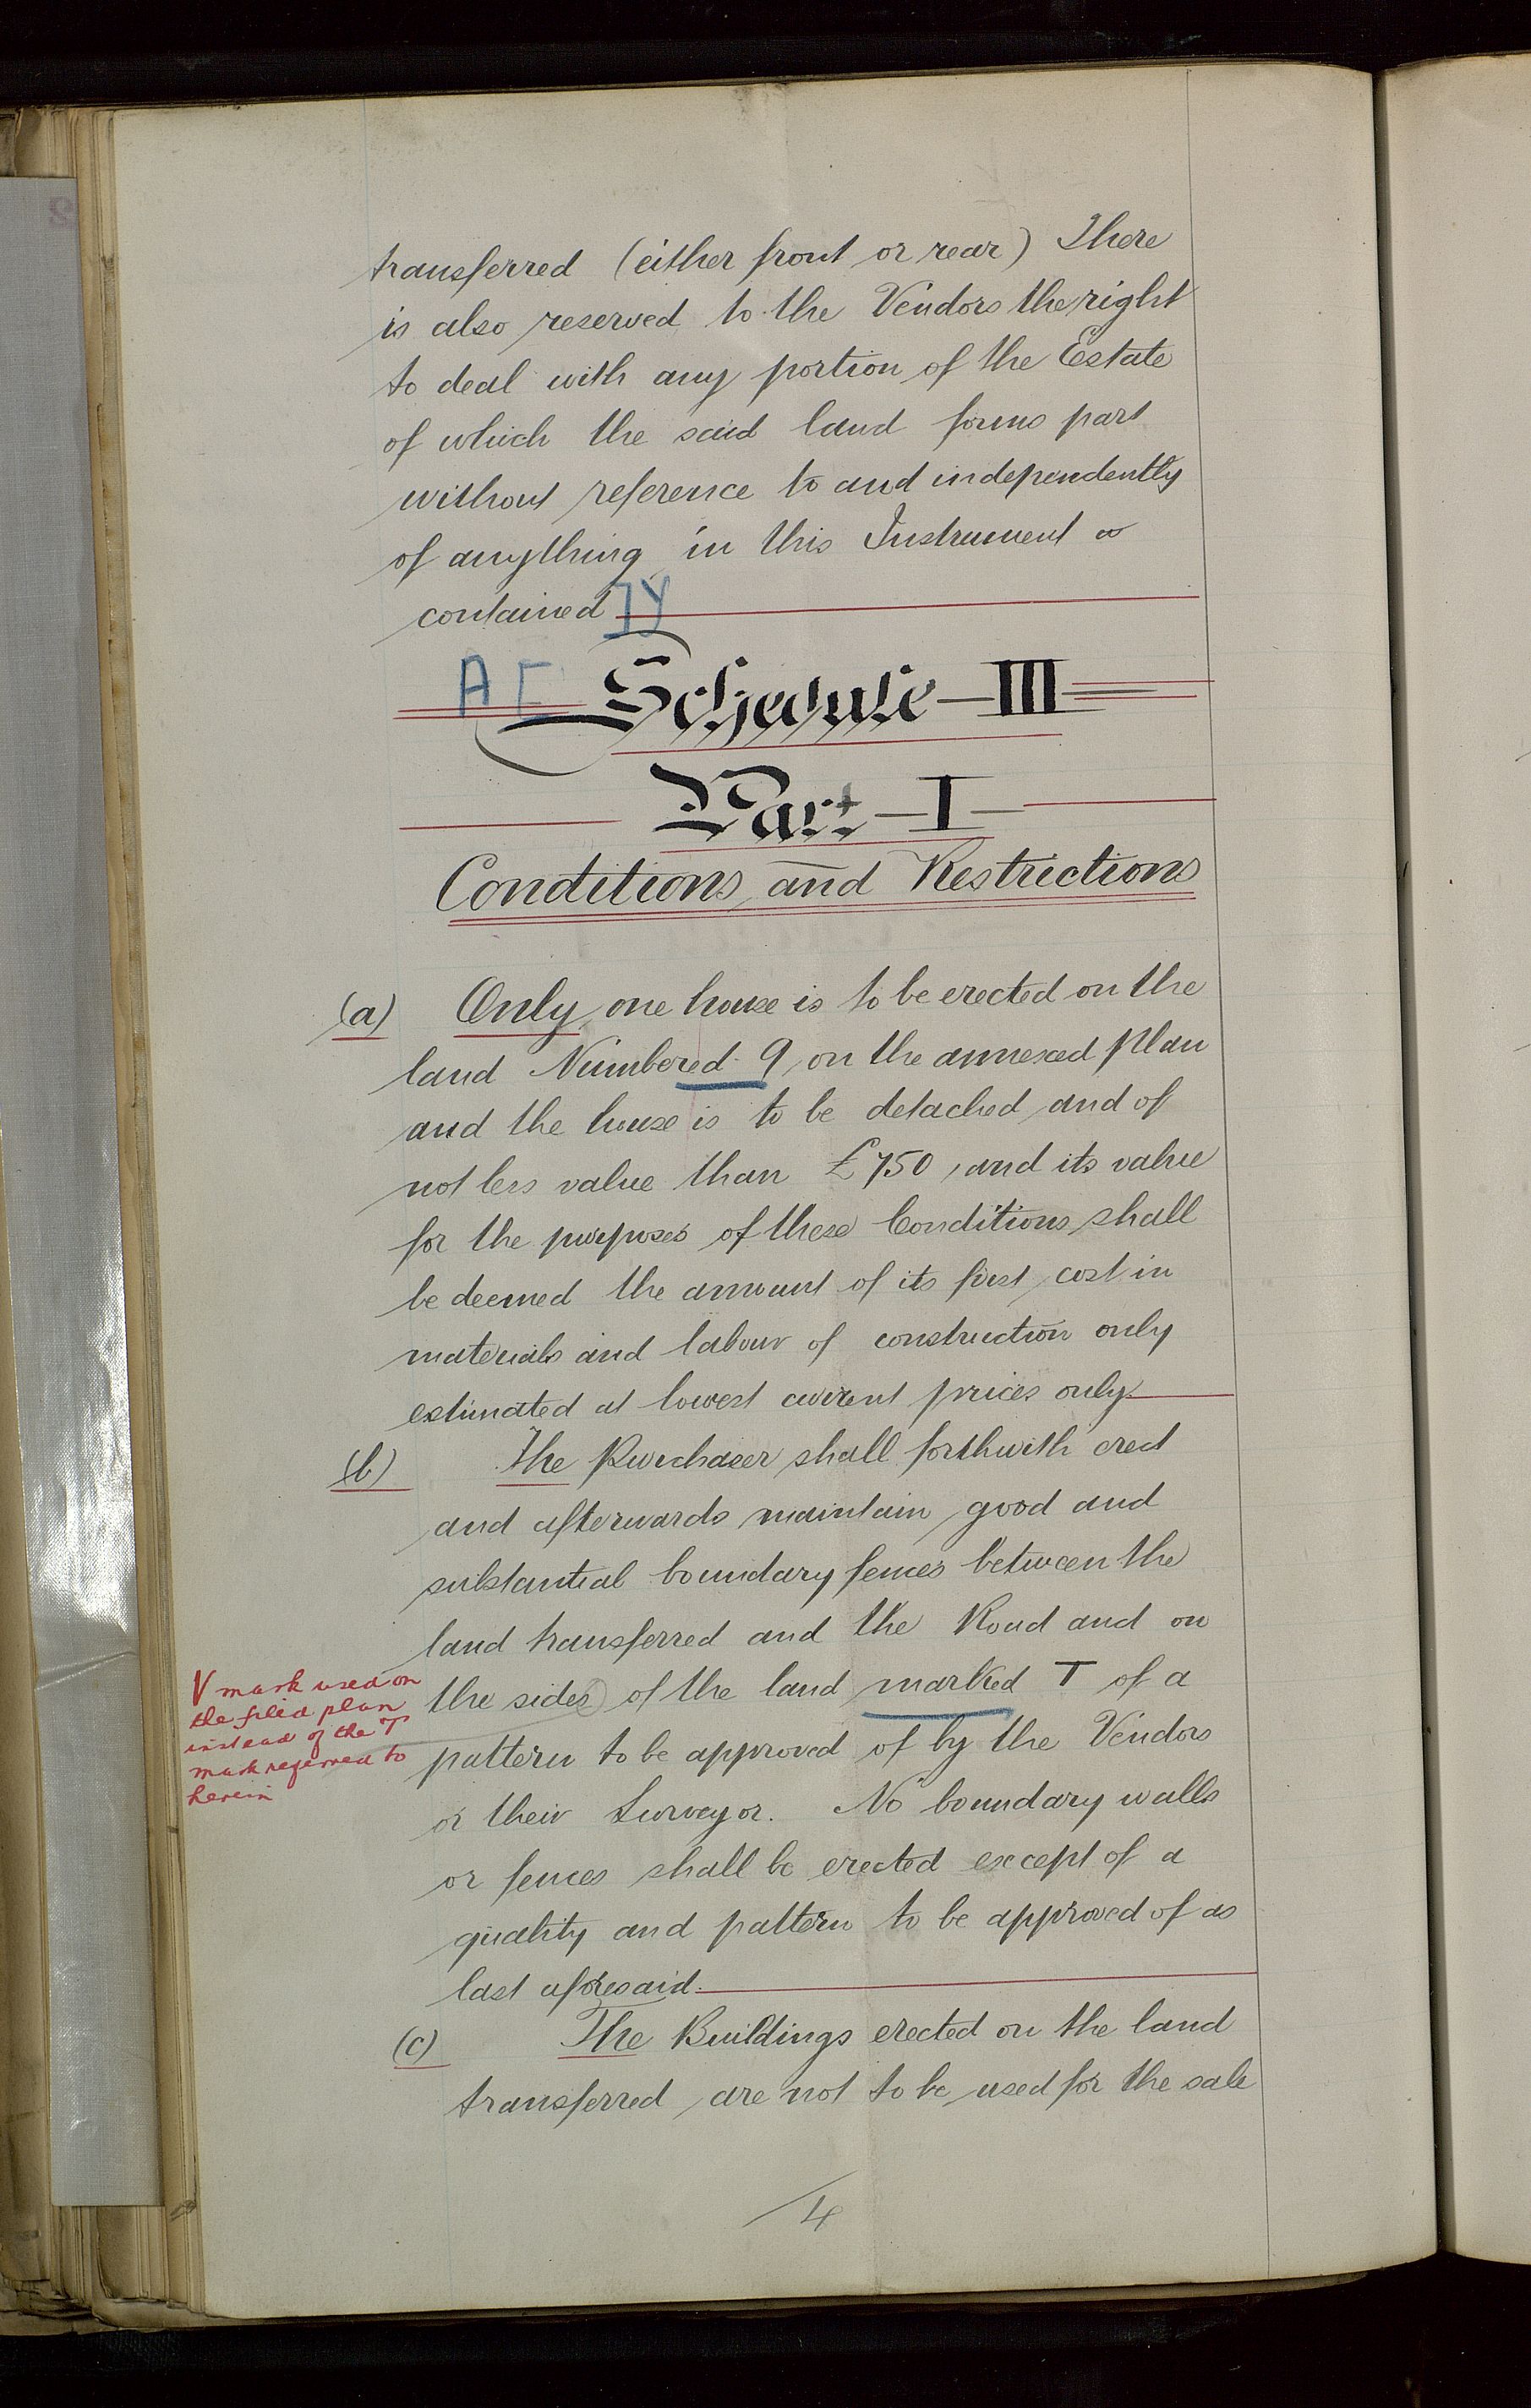 transferred (either front or rear) There
is also reserved to the Vendors the right
to deal with any portion of the Estate
of which the said land forms part
without reference to and independently
of anything in this Instrument
contained ] Y
A [ Schedule III
Part I
Conditions and Restrictions
(a) Only one house is to be erected on the
land Numbered 9 on the annexed plan
and the house is to be detached and of
not less value than £750, and its value
for the purposes of these Conditions shall
be deemed the amount of its first cost in
materials and labour of construction only
estimated at lowest current prices only
(b) The Purchaser shall forthwith erect
and afterwards maintain good and
substantial boundary fences between the
land transferred and the Road and on
the sides of the land marked T of a
pattern to be approved of by the Vendors
or their Surveyor. No boundary walls
or fences shall be erected except of a
quality and pattern to be approved of as
last aforesaid.
V mark used on
the filed plan
instead of the T
mark referred to
herein
(c) The Buildings erected on the land
transferred are not to be used for the sale
4